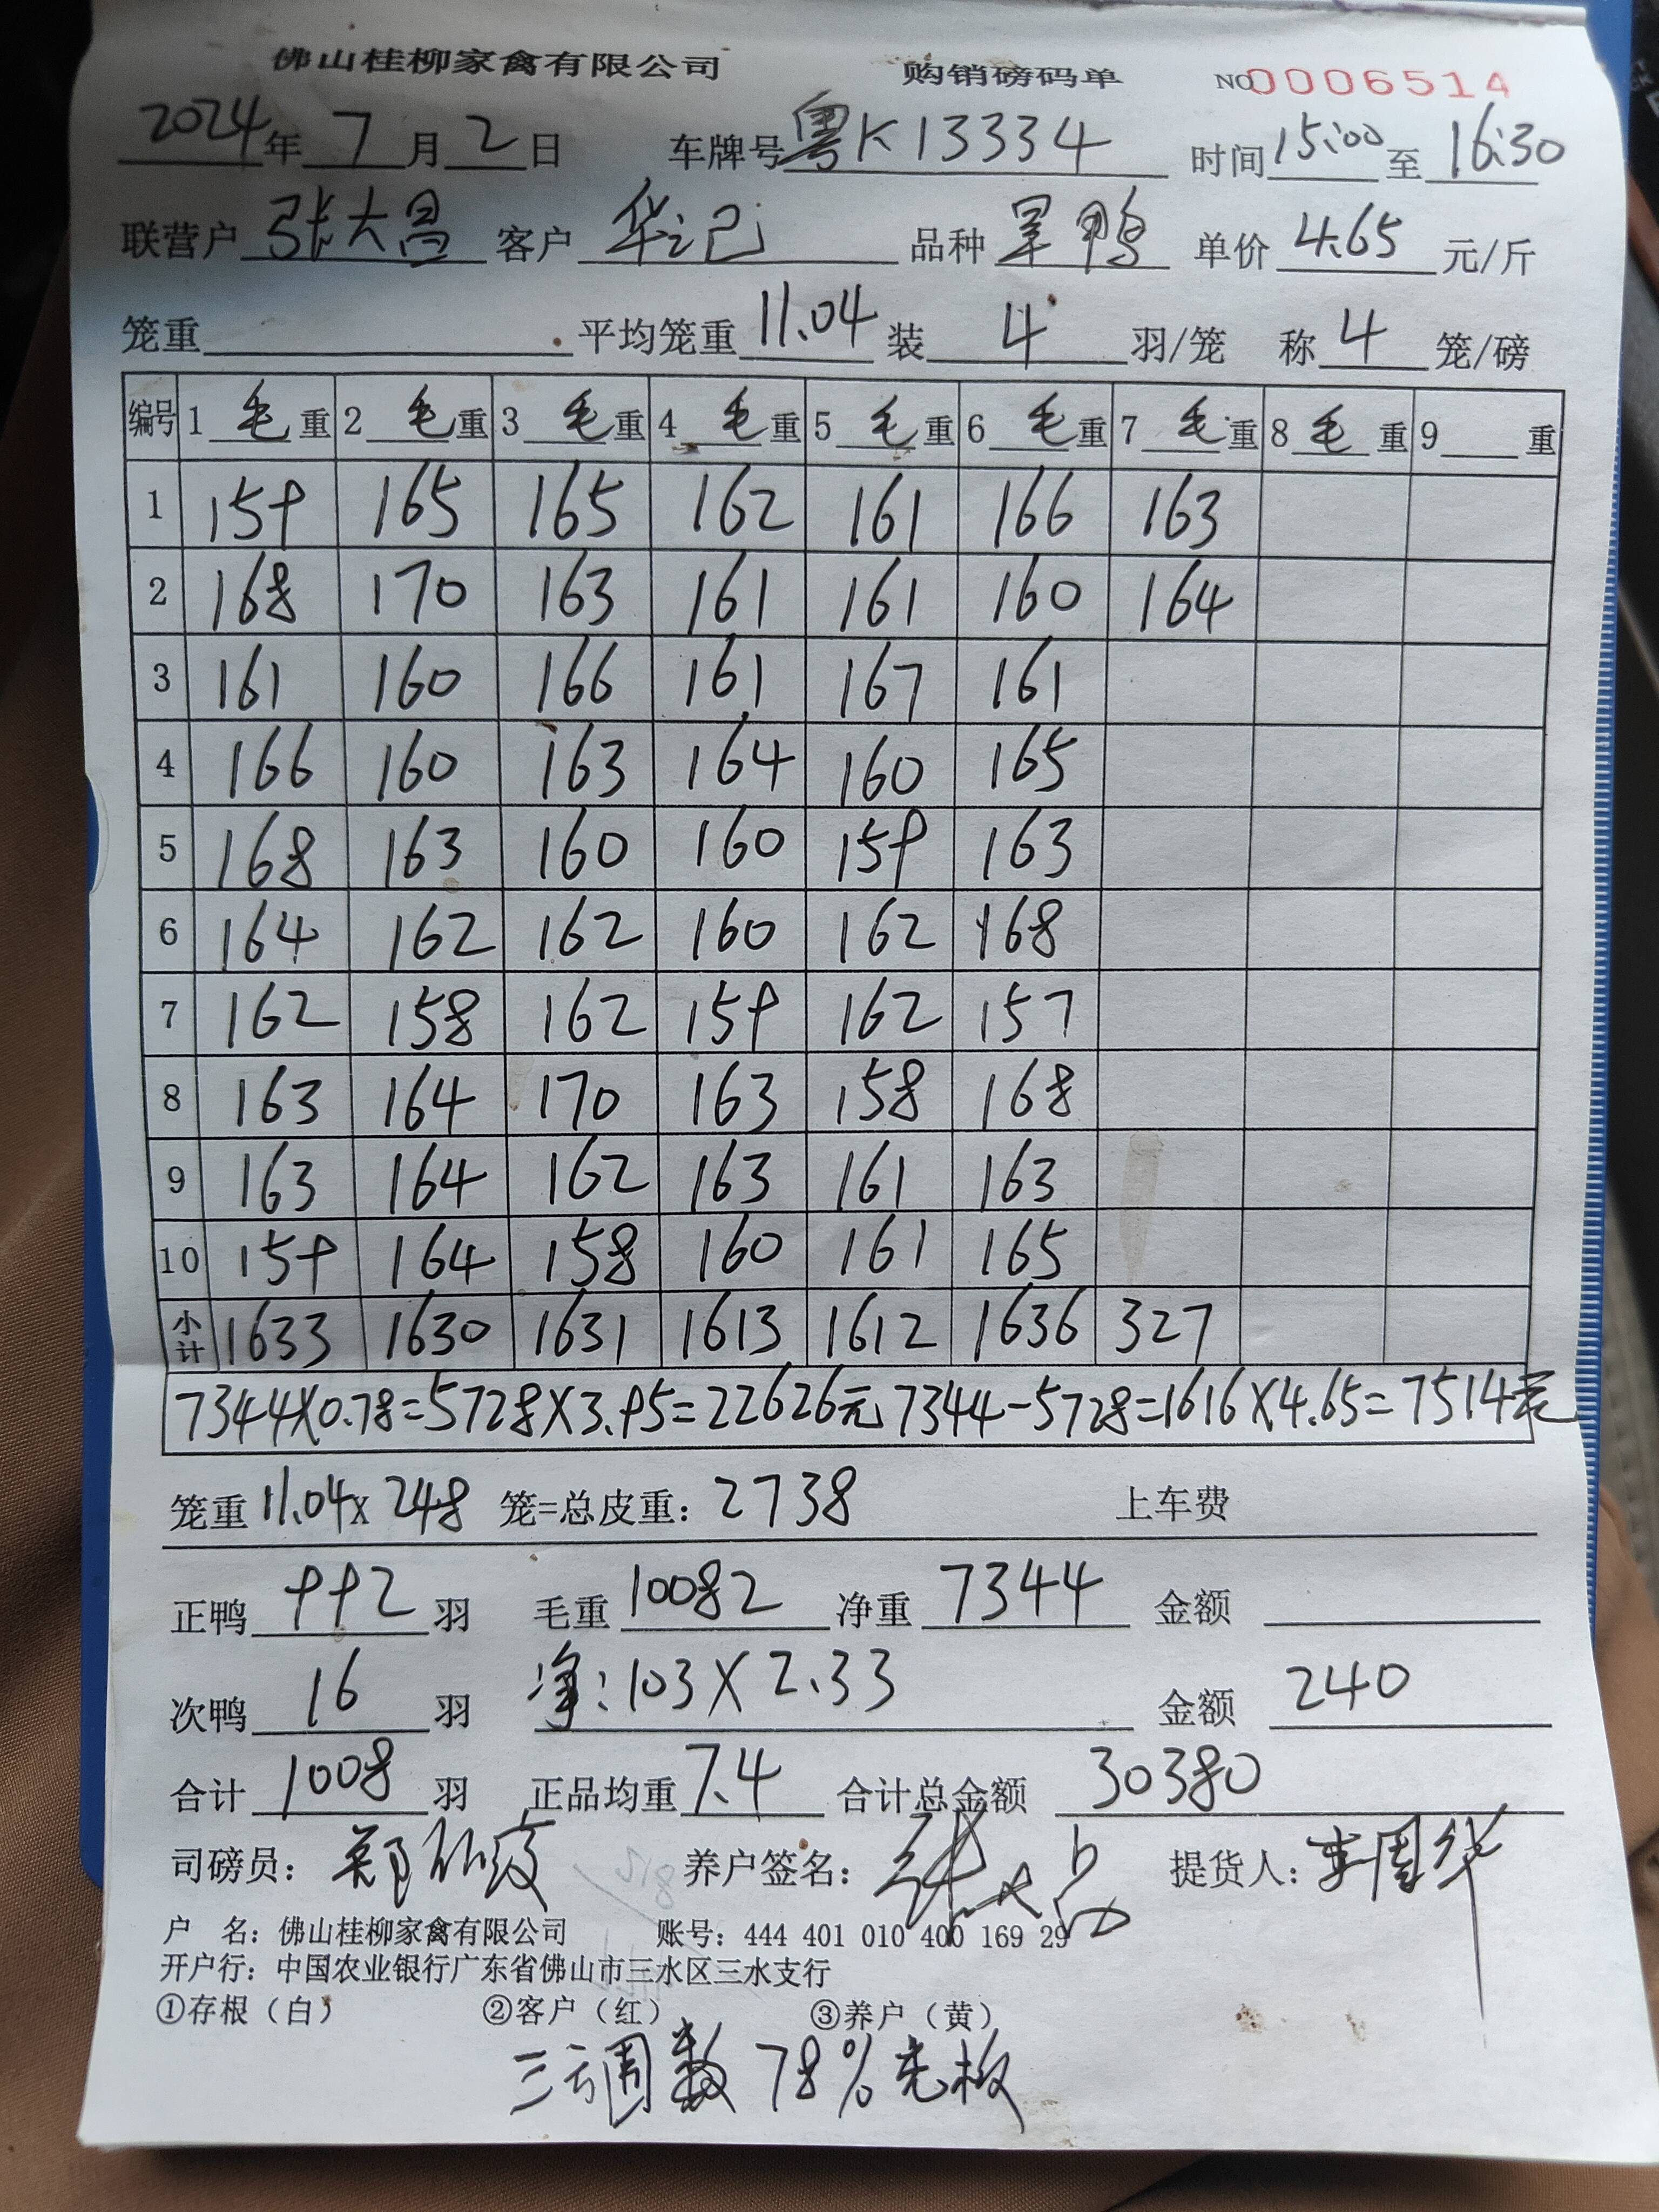 佛山桂柳家禽有限公司 购销磅码单 NO 0006514
2024年7月2日 车牌号粤K13334 时间15:00至16:30
联营户 张大昌 客户 华记 品种 旱鸭 单价4.65元/斤
笼重 平均笼重11.04装4羽/笼 称4笼/磅
编号 1毛重 2毛重 3毛重 4毛重 5毛重 6毛重 7毛重 8毛重 9重
1 159 165 165 162 161 166 163
2 168 170 163 161 161 160 164
3 161 160 166 161 167 161
4 166 160 163 164 160 165
5 168 163 160 160 159 163
6 164 162 162 160 162 168
7 162 158 162 159 162 157
8 163 164 170 163 158 168
9 163 164 162 163 161 163
10 159 164 158 160 161 165
小计 1633 1630 1631 1613 1612 1636 327
7344×0.78=5728×3.95=22626元 7344-5728=1616×4.65=7514元
笼重11.04×248笼=总皮重：2738 上车费
正鸭992羽 毛重10082 净重7344 金额
次鸭16羽 净:103×2.33 金额240
合计1008羽 正品均重7.4 合计总金额30380
司磅员：郑 养户签名：张大昌 提货人：李周华
户 名：佛山桂柳家禽有限公司 账号：444 401 010 400 169 29
开户行：中国农业银行广东省佛山市三水区三水支行
①存根（白） ②客户（红） ③养户（黄）
三方调数78%光板